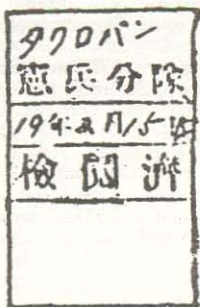 タクロバン
憲兵分隊
19年2月15日
検閲済